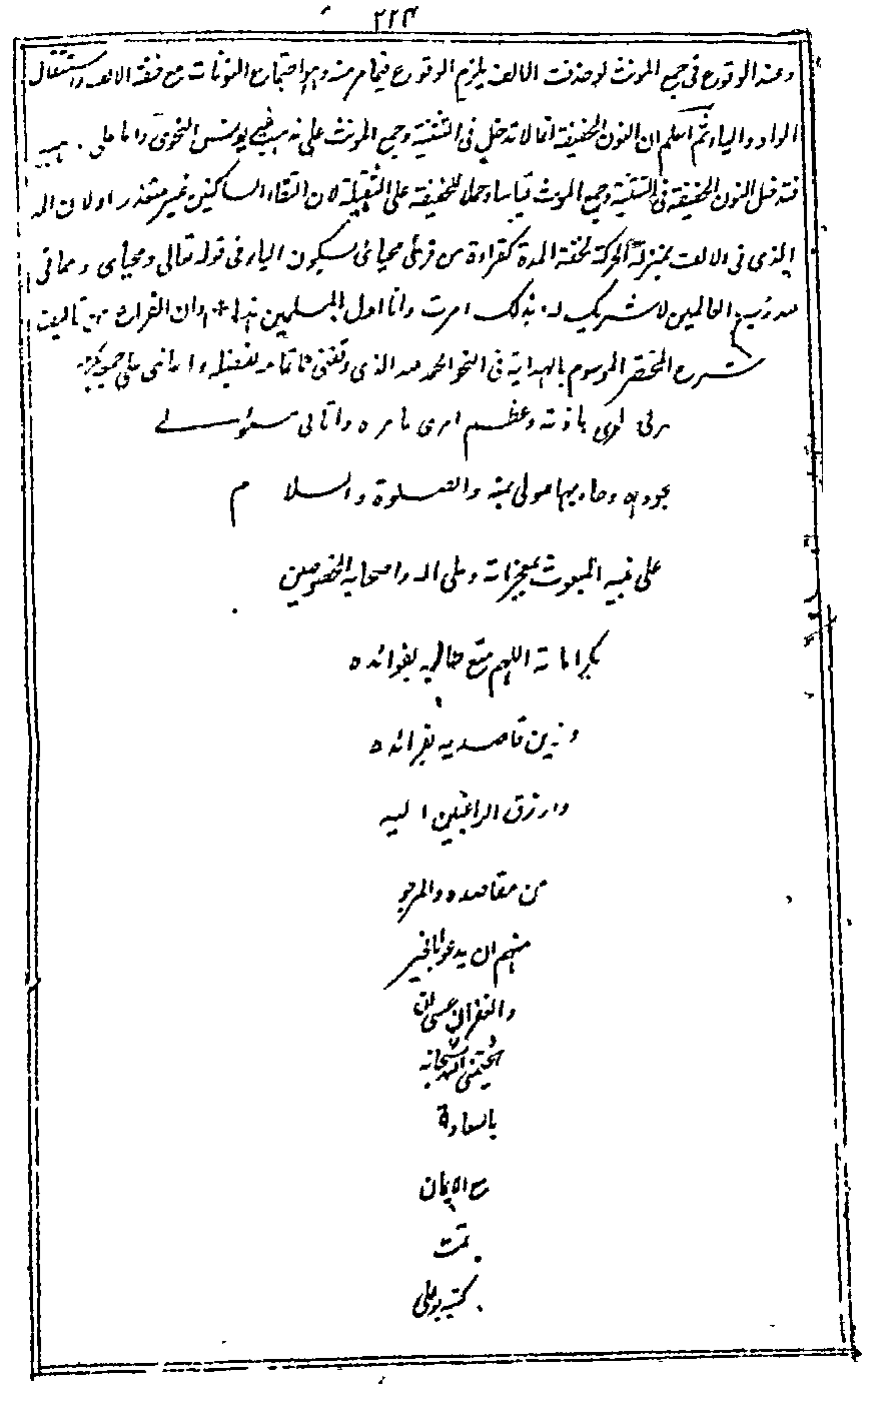 ٢٢٤
وعند الوقوع في جمع المونث لو حذفت الالف يلزم الوقوع فيما مر منه وهو اجتماع النونات مع خفة الالف واستثقال
الواو والياء ثم اعلم ان النون الخفيفة انما لا تدخل في التثنية وجمع المونث على مذهب غير يونس النحوى واما على مذهبه
فتدخل النون الخفيفة في التثنية وجمع المونث قياسا وحملا للخفيفة على الثقيلة لان التقاء الساكنين غير متعذر اولان المد
الذى في الالف بمنزلة الحركة لخفة المدة كقراءة من قرأ محياى بسكون الياء في قوله تعالى ومحياى ومماتى
لله رب العالمين لا شريك له وبذلك امرت وانا اول المسلمين هذا اوان الفراغ من تاليف
شرح المختصر الموسوم بالهداية في النحو الحمد لله الذى وفقنى بفضله واعاننى على
باذنه وعظم امرى بامره واتانى سؤلى
بجوده بمنه والصلوة والسلام
على نبيه المبعوث بمعجزاته وعلى اله واصحابه المخصوصين
بكراماته اللهم متع طالبيه بفوائده
وزين قاصديه بفرائده
وارزق الراغبين اليه
من مقاصده والمرجو
منهم ان يدعو بالخير
والغفران عسى ان
يختمنى الله سبحانه
بالسعادة
مع الايمان
تمت
كتبه بوعلى